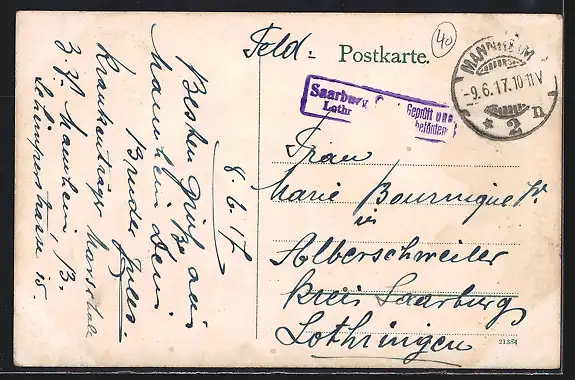 Feld= Postkarte.
40
MANNHEIM
-9.6.17.10-11V
* 2 n
Saarburg
Lothr
Geprüft und
befördert
Frau
Marie Bournique W.
in
Alberschweiler
Kreis Saarburg
Lothringen
21354
8.6.17
Besten Gruß aus
Manheim Dein
Bruder Jules.
Krankenträger Marschall
z. Zt. Manheim 13.
Schimperstrasse 15.